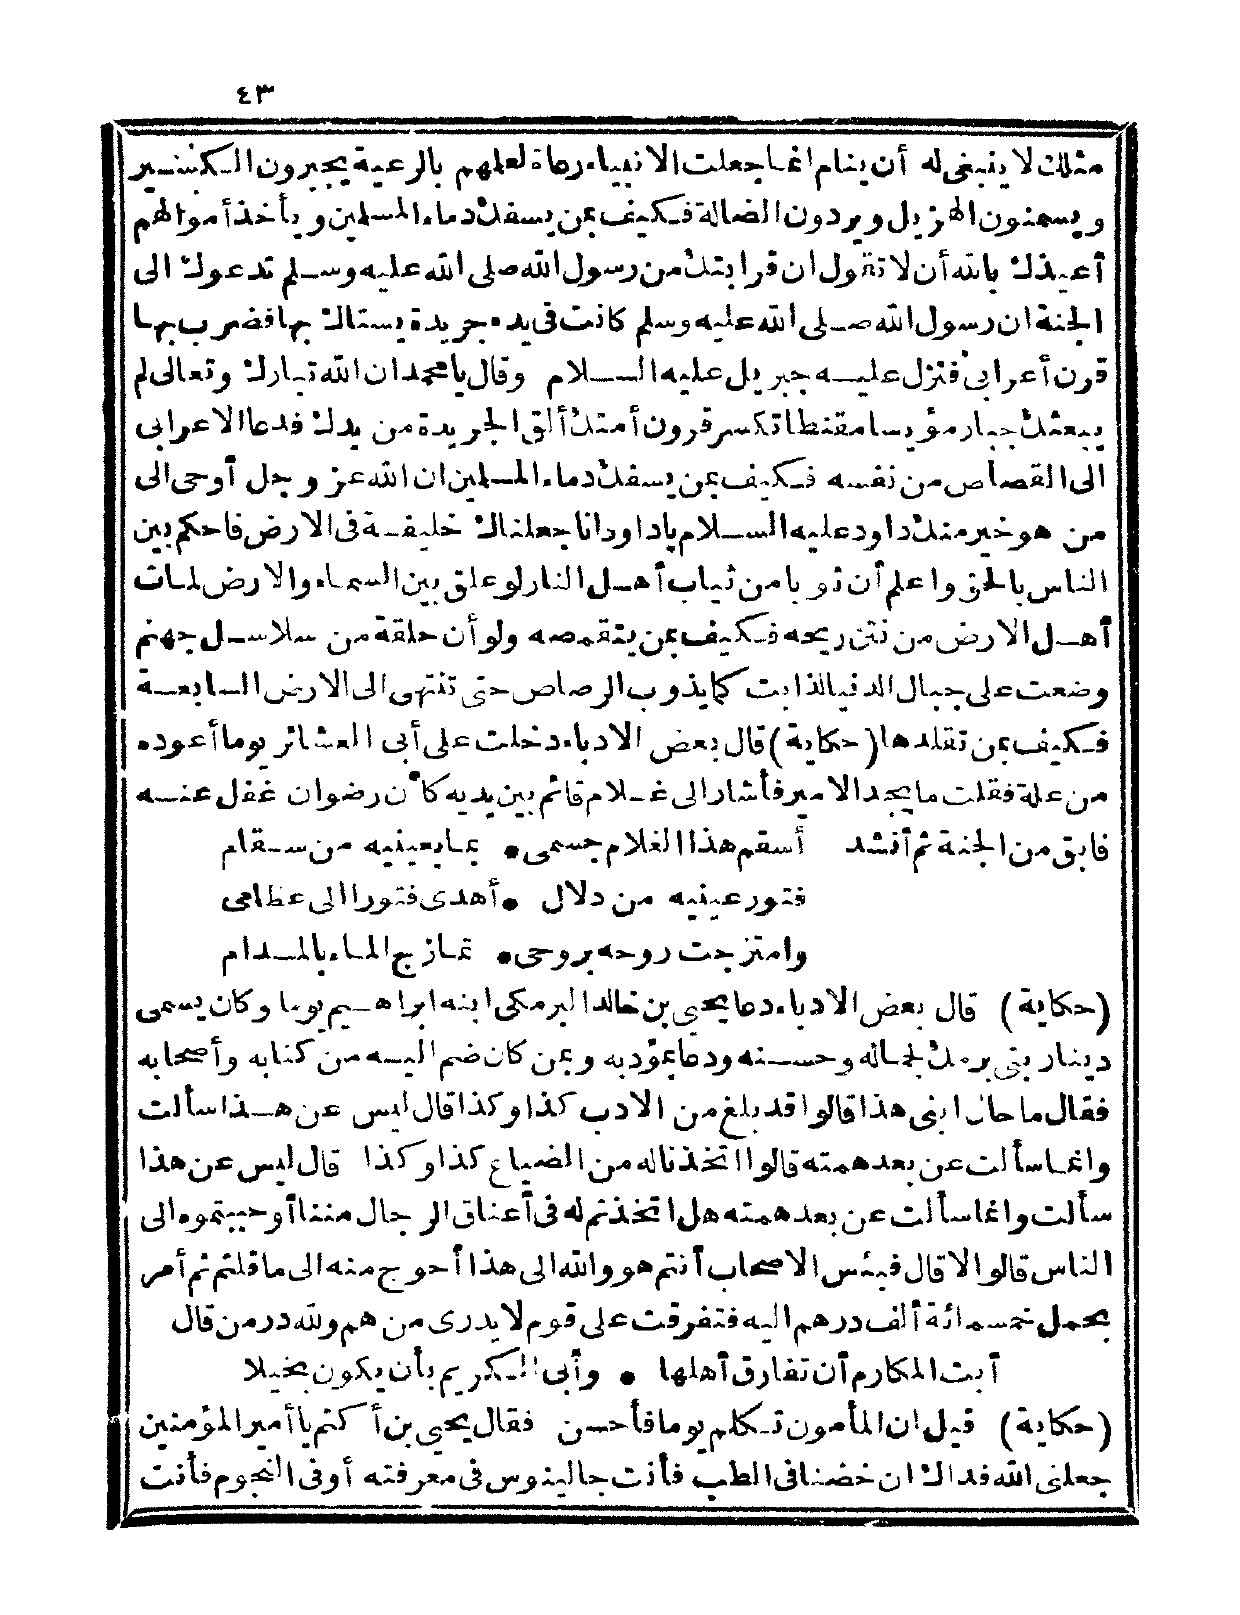 ٤٣
مثلك لا ينبغى له أن ينام انما جعلت الانبياء رعاة لعلمهم بالرعية يجبرون الكسير
ويسمنون الهزيل ويردون الضالة فكيف بمن يسفك دماء المسلمين ويأخذ أموالهم
أعيذك بالله أن لا تقول ان قرابتك من رسول الله صلى الله عليه وسلم تدعوك الى
الجنة ان رسول الله صلى الله عليه وسلم كانت فى يده جريدة يستاك بها فضرب بها
قرن أعرابى فنزل عليه جبريل عليه السلام وقال يا محمد ان الله تبارك وتعالى لم
يبعثك جبارمؤيسا مقنطا تكسر قرون أمتك ألق الجريدة من يدك فدعا الاعرابى
الى القصاص من نفسه فكيف بمن يسفك دماء المسلمين ان الله عز وجل أوحى الى
من هو خير منك داود عليه السلام ياداود انا جعلناك خليفة فى الارض فاحكم بين
الناس بالحق واعلم أن ثوبا من ثياب أهل النار لو علق بين السماء والارض لمات
أهل الارض من نتن ريحه فكيف بمن يتقمصه ولو أن حلقة من سلاسل جهنم
وضعت على جبال الدنيا لذابت كما يذوب الرصاص حتى تنتهى الى الارض السابعة
فكيف بمن تقلدها (حكاية) قال بعض الادباء دخلت على أبى العشائر يوما أعوده
من علة فقلت ما يجد الامير فأشار الى غلام قائم بين يديه كأن رضوان غفل عنه
فابق من الجنة ثم أنشد أسقم هذا الغلام جسمى • بما بعينيه من سقام
فتور عينيه من دلال • أهدى فتورا الى عظامى
وامتزجت روحه بروحى • تمازج الماء بالمدام
(حكاية) قال بعض الادباء دعا يحيى بن خالد البرمكى ابنه ابراهيم يوما وكان يسمى
دينار بنى برمك لجماله وحسنه ودعا بمؤدبه وبمن كان ضم اليسه من كتابه وأصحابه
فقال ما حال ابنى هذا قالوا قد بلغ من الادب كذا وكذا قال ليس عن هذا سألت
وانما سألت عن بعد همته قالوا اتخذنا له من الضياع كذا وكذا قال ليس عن هذا
سألت وانما سألت عن بعد همته هل اتخذتم له فى أعناق الرجال مننا أو حببتموه الى
الناس قالوا لا قال فبئس الاصحاب أنتم هو والله الى هذا أحوج منه الى ما قلتم ثم أمر
بحمل خمسمائة ألف درهم اليه ففرقت على قوم لا يدرى من هم ولله در من قال
أبت المكارم أن تفارق أهلها • وأبى الكريم بأن يكون بخيلا
(حكاية) قيل ان المأمون تكلم يوما فأحسن فقال يحيى بن أكتم يا أمير المؤمنين
جعلنى الله فداك ان خضنا فى الطب فأنت جالينوس فى معرفته أو فى النجوم فأنت